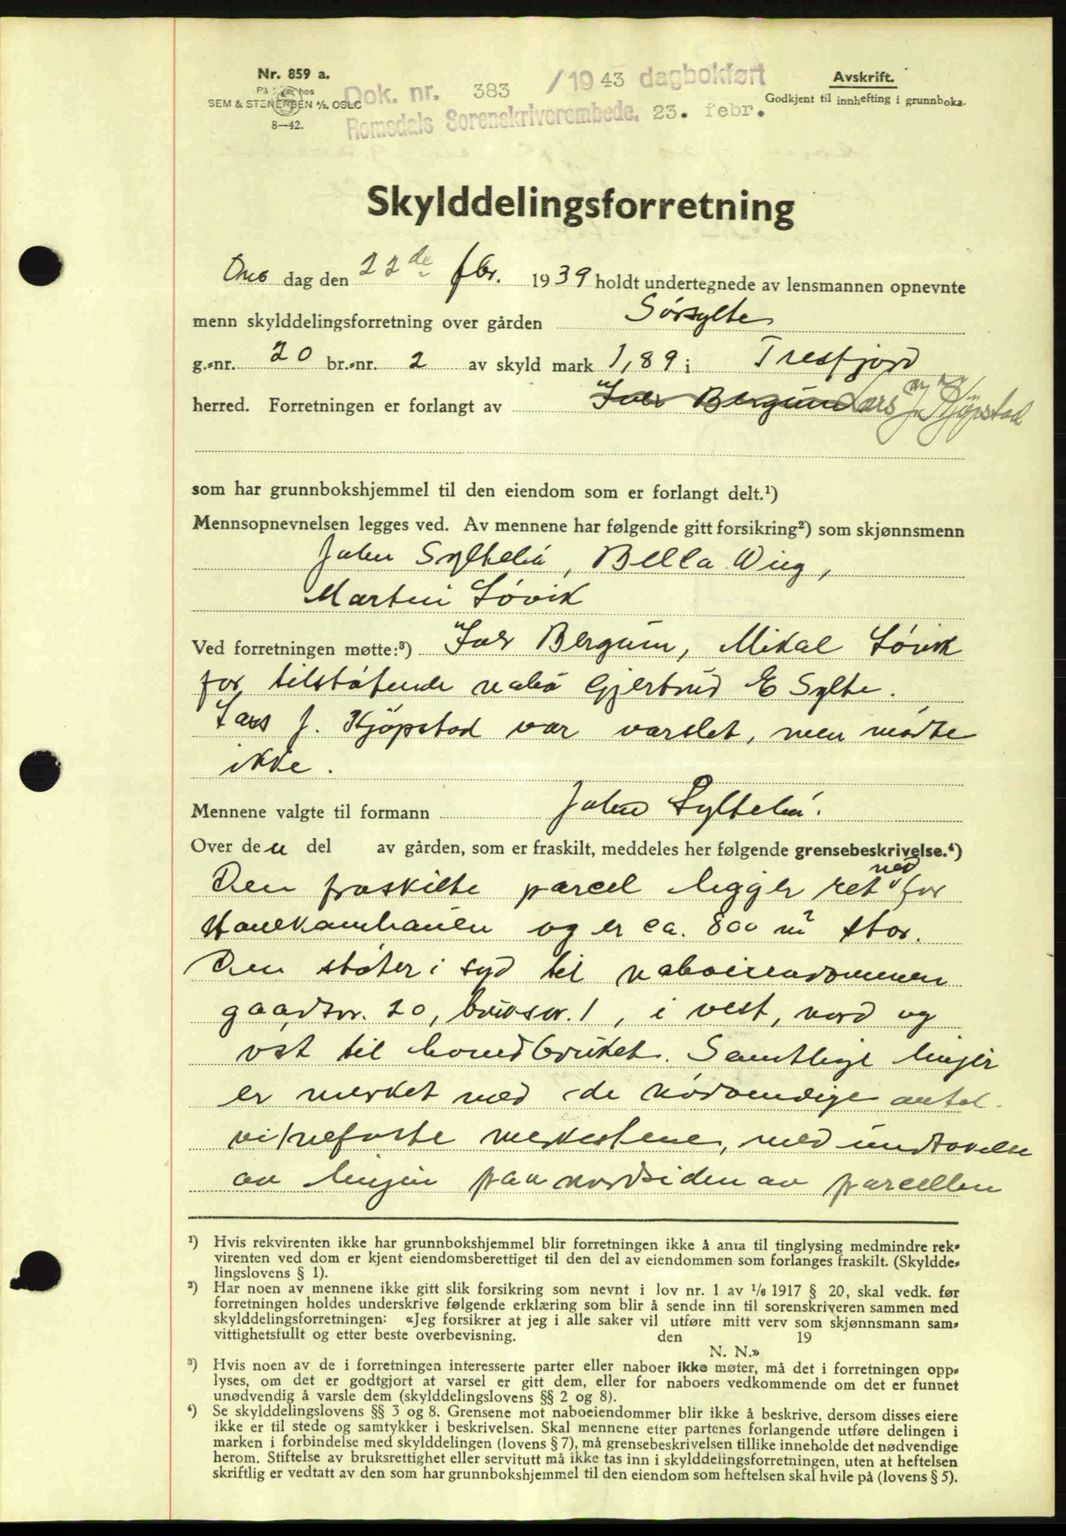 Nr. 859 a.
På lager hos
SEM & STENERSEN A/S, OSLO
8—42.
Dok. nr. 383 /1943 dagbokført
Romsdals Sorenskriverembede. 23. febr.
Avskrift.
Godkjent til innhefting i grunnboka.
Skylddelingsforretning
Ons dag den 22de fbr. 1939 holdt undertegnede av lensmannen opnevnte
menn skylddelingsforretning over gården Sørsylte
g.-nr. 20 br.-nr. 2 av skyld mark 1,89 i Tresfjord
herred. Forretningen er forlangt av Iver Bergum Lars J. Kjöpstad
som har grunnbokshjemmel til den eiendom som er forlangt delt.¹)
Mennsopnevnelsen legges ved. Av mennene har følgende gitt forsikring²) som skjønnsmenn
John Syltebö, Bella Wiig,
Martin Løvik
Ved forretningen møtte:³) Iver Bergum, Mikal Løvik
for tilstøtende nabo Gjertrud E Sylte.
Lars J. Kjöpstad var varslet, men mødte
ikke.
Mennene valgte til formann John Syltebö.
Over den del av gården, som er fraskilt, meddeles her følgende grensebeskrivelse.⁴)
Den fraskilte parcel ligger ret ned for
Hanekamhaugen og er ca. 800 m² stor.
Den støter i syd til naboeiendommen
gaardsnr. 20, bruksnr. 1, i vest, nord og
øst til hovedbruket. Samtlige linjer
er merket med de nødvendige antal
vitnefaste merkestene, med undtagelse
av linjen paa nordsiden av parcellen
¹) Hvis rekvirenten ikke har grunnbokshjemmel blir forretningen ikke å anta til tinglysing medmindre rek-
virenten ved dom er kjent eiendomsberettiget til den del av eiendommen som forlanges fraskilt. (Skyldde-
lingslovens § 1).
²) Har noen av mennene ikke gitt slik forsikring som nevnt i lov nr. 1 av 1/6 1917 § 20, skal vedk. før
forretningen holdes underskrive følgende erklæring som blir å sende inn til sorenskriveren sammen med
skylddelingsforretningen: «Jeg forsikrer at jeg i alle saker vil utføre mitt verv som skjønnsmann sam-
vittighetsfullt og etter beste overbevisning. den 19
N. N.»
³) Hvis noen av de i forretningen interesserte parter eller naboer ikke møter, må det i forretningen opp-
lyses, om det er godtgjort at varsel er gitt dem, eller for naboers vedkommende om det er funnet
unødvendig å varsle dem (skylddelingslovens §§ 2 og 8).
⁴) Se skylddelingslovens §§ 3 og 8. Grensene mot naboeiendommer blir ikke å beskrive, dersom disses eiere
ikke er til stede og samtykker i beskrivelsen. Skal mennene etter partenes forlangende utføre delingen i
marken i forbindelse med skylddelingen (lovens § 7), må grensebeskrivelsen tillike inneholde det nødvendige
herom. Stiftelse av bruksrettighet eller servitutt må ikke tas inn i skylddelingsforretningen, uten at heftelsen
skriftlig er vedtatt av den som har grunnbokshjemmel til den eiendom som heftelsen skal hvile på (lovens § 5).